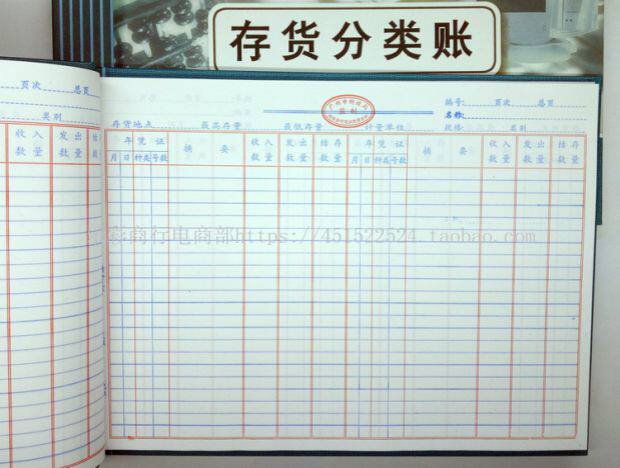 存货分类账
页次 总页
类别
收入 发出 结存
数量 数量 数量
广州市财政局
监制
编号: 页次 总页
名称:
存货地点 最高存量 最低存量 计量单位 规格: 类别
年 凭证 摘要 收入 发出 结存 年 凭证 摘要 收入 发出 结存
月 日 种类 号数 数量 数量 数量 月 日 种类 号数 数量 数量 数量
彩商行电商部https://451522524.taobao.com